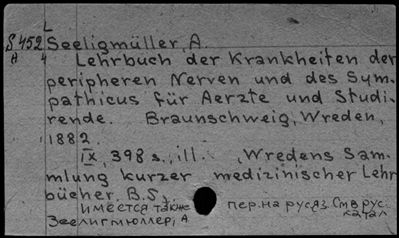 L
S 452 Seeligmüller, A.
A 4 Lehrbuch der Krankheiten der
peripheren Nerven und des Sym-
pathicus für Aerzte und Studi-
rende. Braunschweig, Wreden,
1882.
IX, 398 s., ill. , Wredens Sam-
mlung kurzer medizinischer Lehr
bücher. B.5,
имеется также пер. на рус яз. См в рус.
Зеелигмюллер, А катал